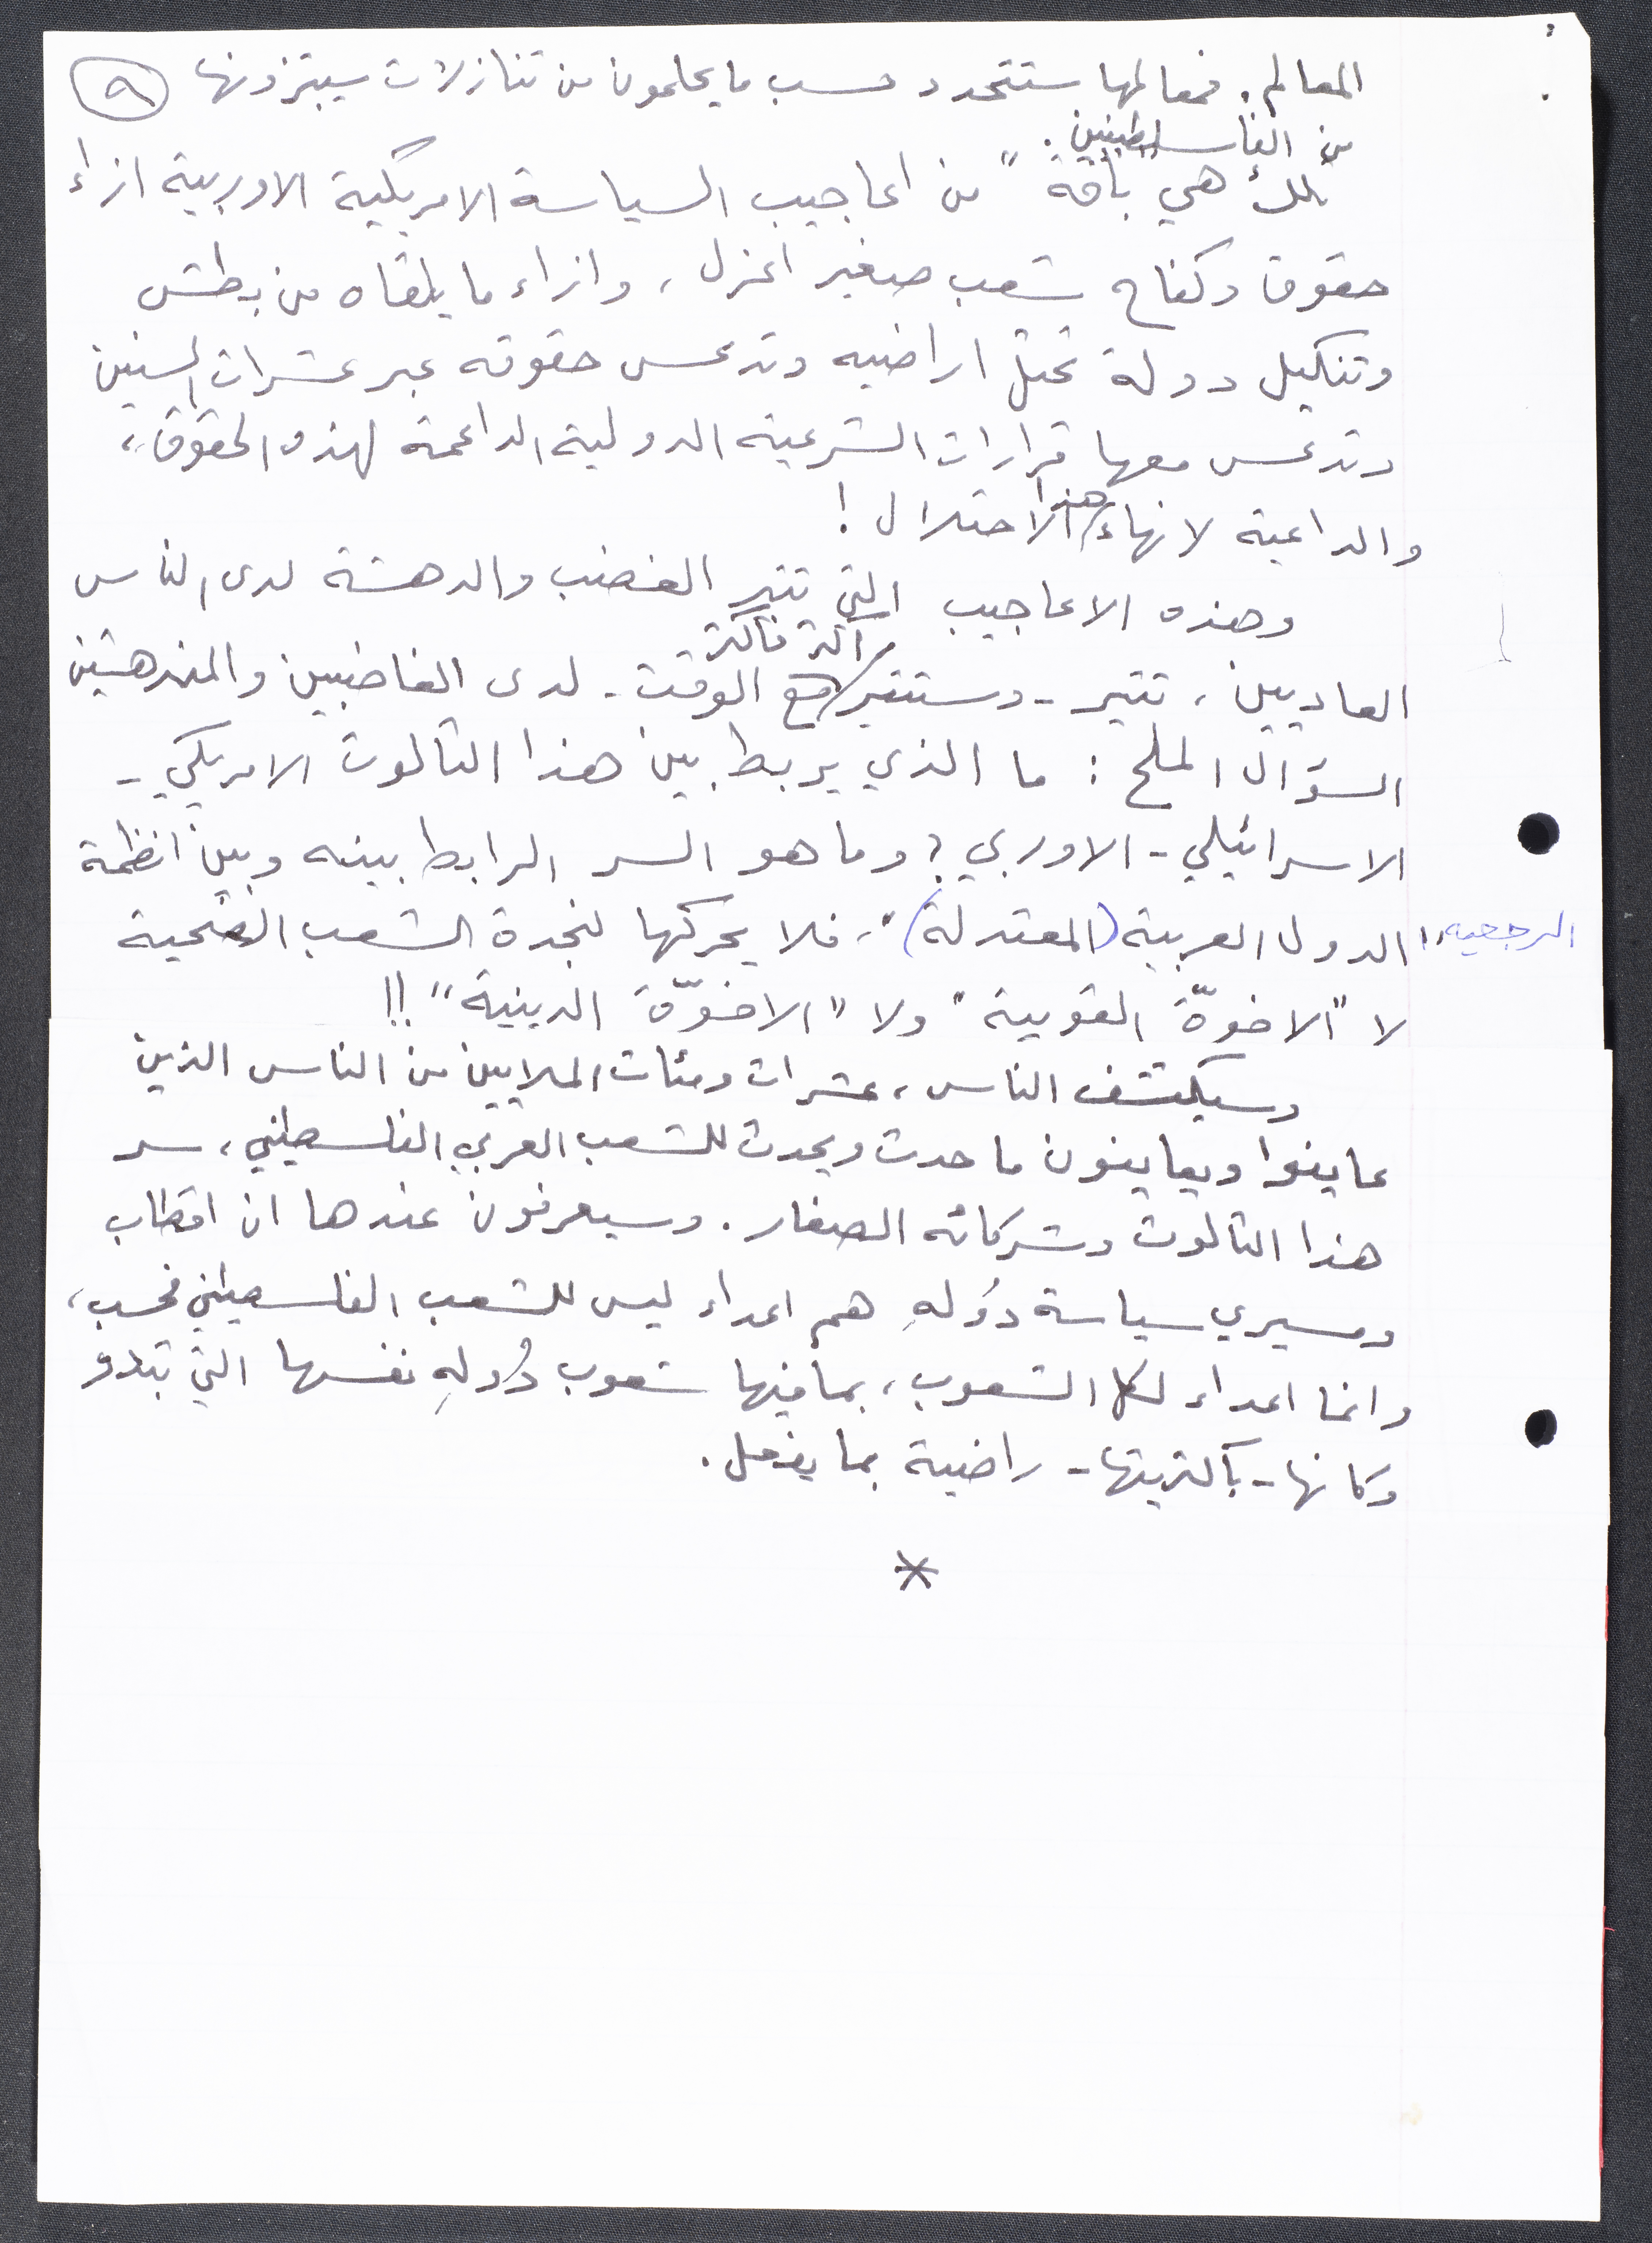 المعالم. فمعالمها ستتحدد حسب ما يحلمون من تنازلات سيبتزونها ٩
من الفلسطينيين.
تلك هي "باقة" من اعاجيب السياسة الامريكية الاوربية ازاء
حقوق وكفاح شعب صغير اعزل، وازاء ما يلقاه من بطش
وتنكيل دولة تحتل اراضيه وتدعس حقوقه عبر عشرات السنين
وتدعس معها قرارات الشرعية الدولية الداعمة لهذه الحقوق،
والداعية لانهاء هذا الاحتلال!
وهذه الاعاجيب التي تثير الغضب والدهشة لدى الناس
العاديين، تثير - وستثير اكثر فاكثر مع الوقت - لدى الغاضبين والمندهشين
السؤال الملح: ما الذي يربط بين هذا الثالوث الامريكي -
الاسرائيلي - الاوربي؟ وما هو السر الرابط بينه وبين انظمة
الدول العربية الرجعيه "(المعتدلة)"، فلا يحركها لنجدة الشعب الضحية
لا "الاخوّة القومية" ولا "الاخوّة الدينية"!!
وسيكتشف الناس، عشرات ومئات الملايين من الناس الذين
عاينوا ويعاينون ما حدث ويحدث للشعب العربي الفلسطيني، سر
هذا الثالوث وشركائه الصغار. وسيعرفون عندها ان اقطاب
ومسيري سياسة دُولهِ هم اعداء ليس للشعب الفلسطيني فحسب،
وانما اعداء لكل الشعوب، بما فيها شعوب دُولهِ نفسها التي تبدو
وكانها - بأكثريتها - راضية بما يفعل.
*